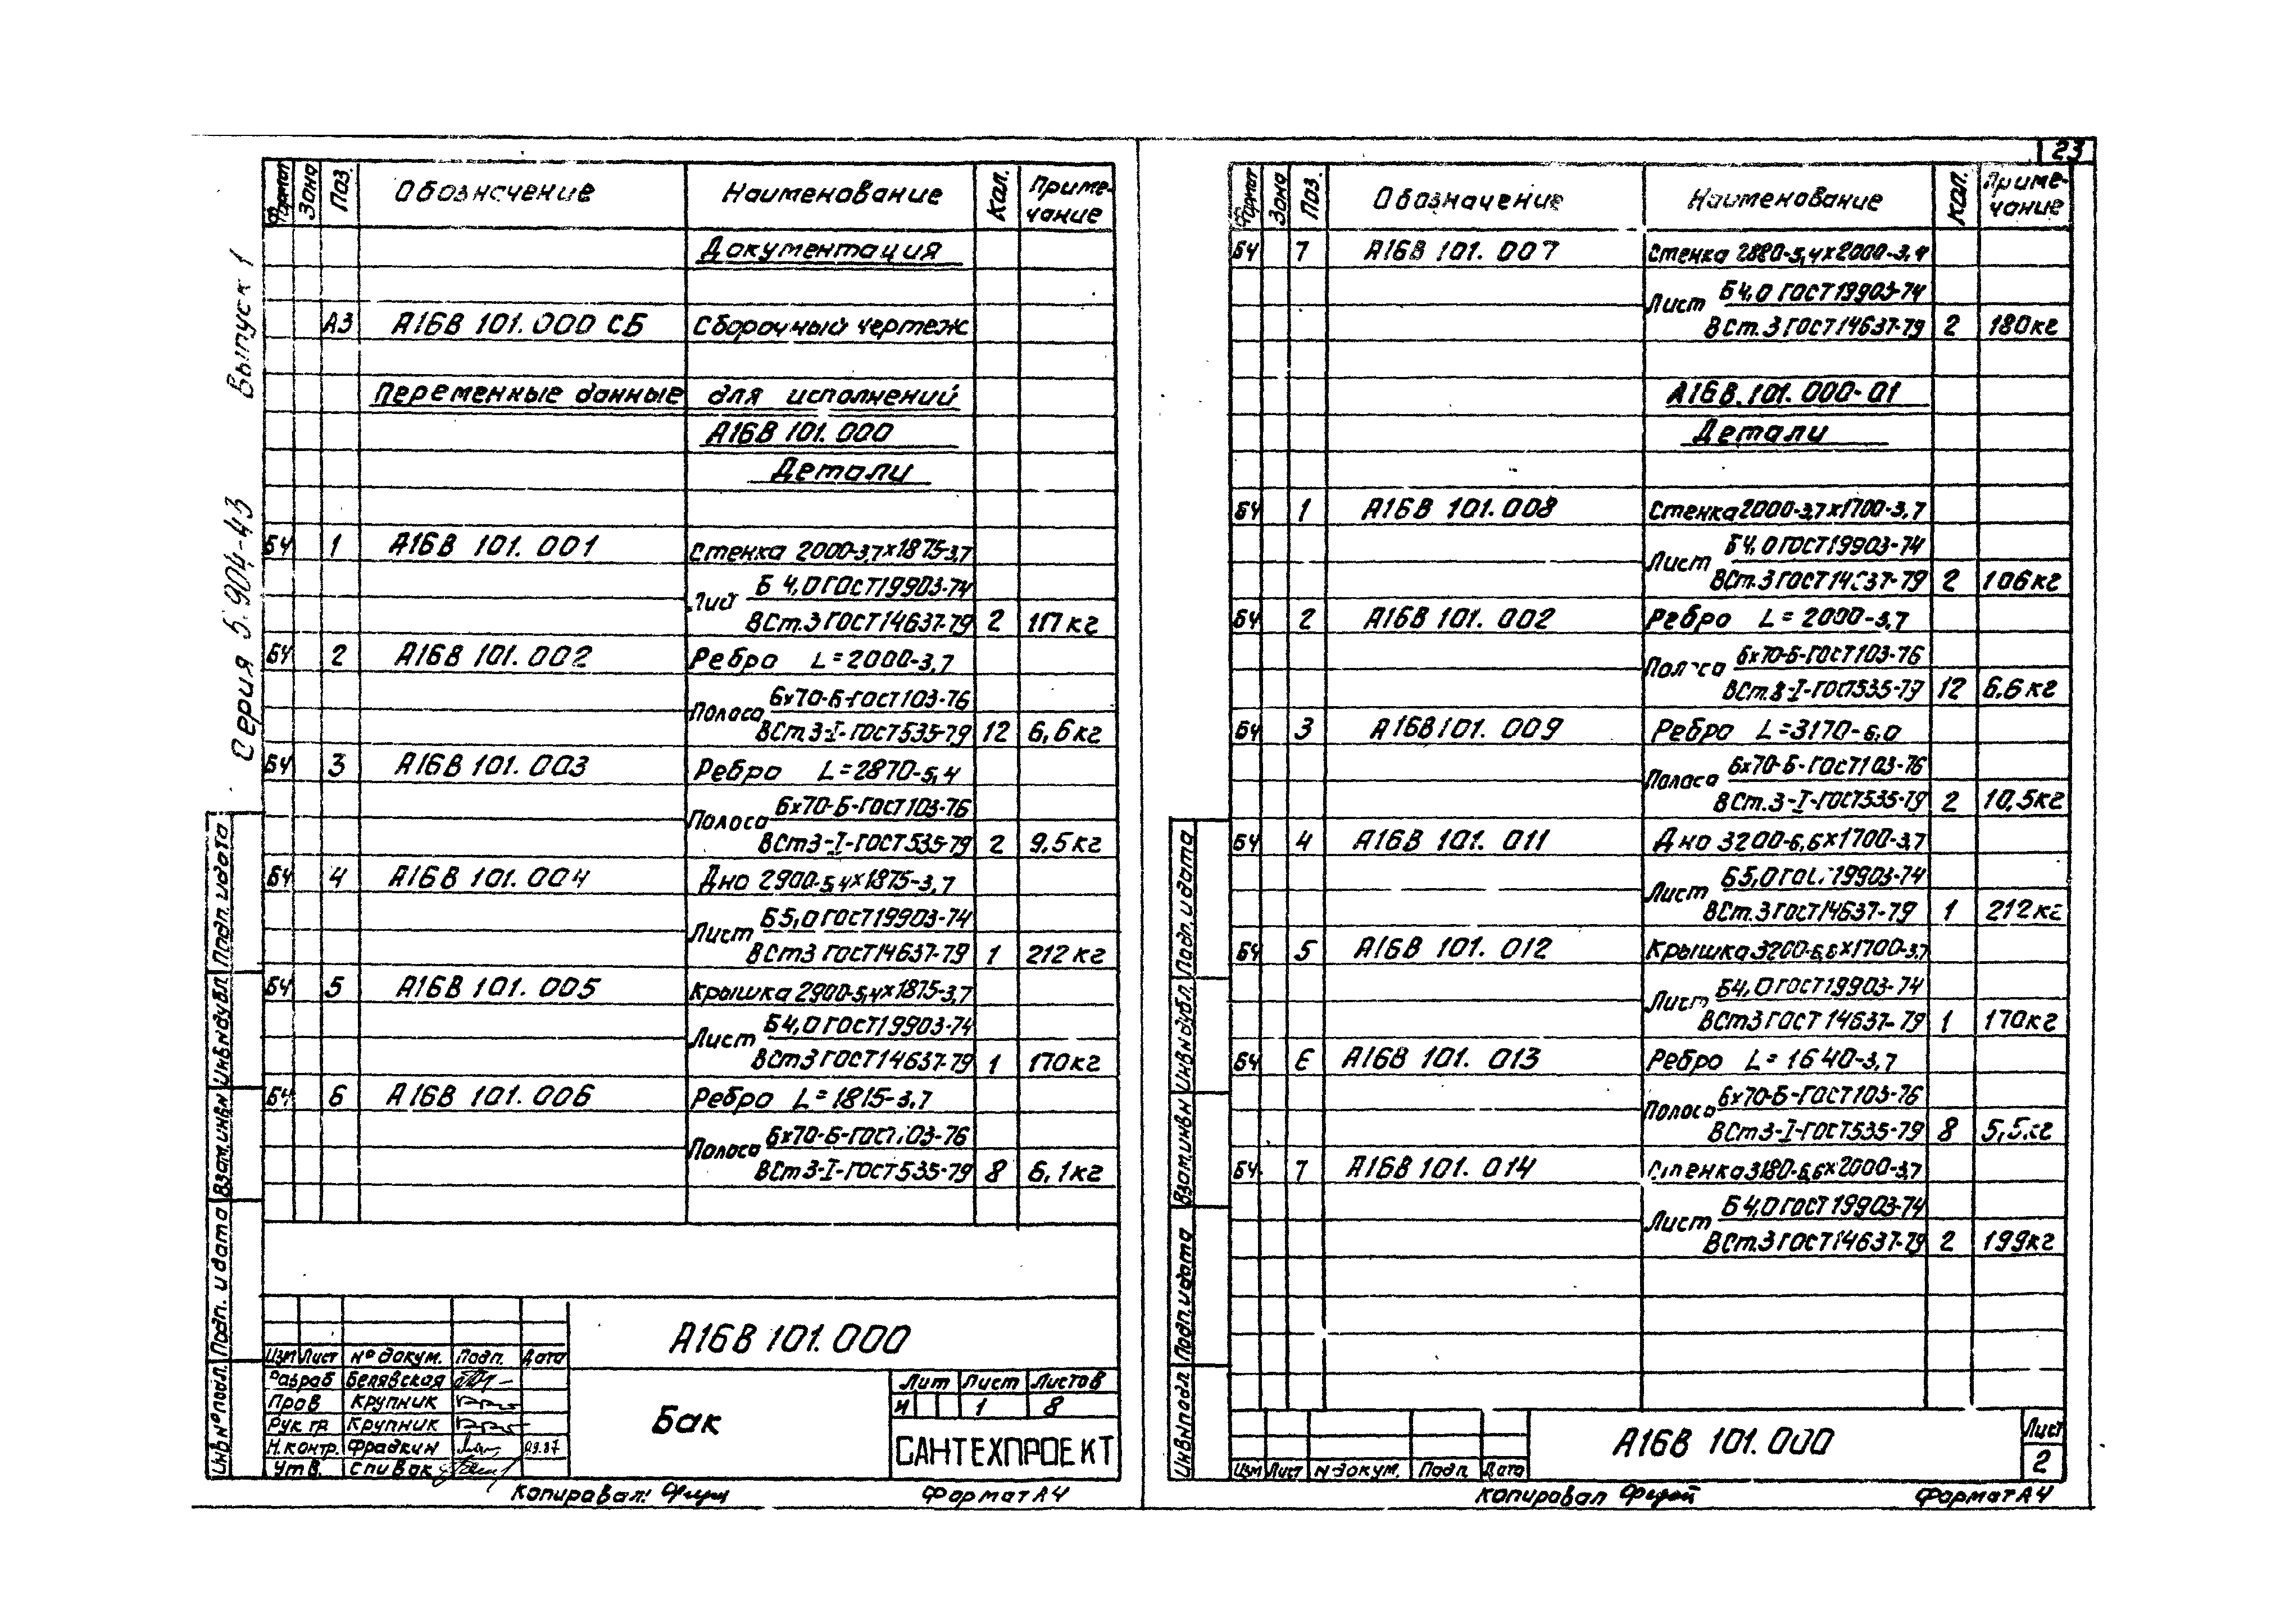 23
Серия 5.904-43 Выпуск 1
Формат Зона Поз. Обозначение Наименование Кол. Приме-
чание
Документация
А3 А16В 101.000 СБ Сборочный чертеж
Переменные данные для исполнений
А16В 101.000
Детали
БЧ 1 А16В 101.001 Стенка 2000-3,7х1875-3,7
Б 4,0 ГОСТ19903-74
ВСт.3 ГОСТ14637-79 2 117кг
БЧ 2 А16В 101.002 Ребро L=2000-3,7
Полоса 6х70-Б-ГОСТ103-76
ВСт.3-I-ГОСТ535-79 12 6,6кг
БЧ 3 А16В 101.003 Ребро L=2870-5,4
Полоса 6х70-Б-ГОСТ103-76
ВСт3-I-ГОСТ535-79 2 9.5кг
БЧ 4 А16В 101.004 Дно 2900-5,4х1875-3,7
Лист Б5,0 ГОСТ19903-74
ВСт3 ГОСТ14637-79 1 212кг
БЧ 5 А16В 101.005 Крышка 2900-5,4х1875-3,7
Лист Б4,0 ГОСТ19903-74
ВСт3 ГОСТ14637-79 1 170кг
БЧ 6 А16В 101.006 Ребро L=1815-3.7
Полоса 6х70-Б-ГОСТ103-76
ВСт3-I-ГОСТ535-79 8 6,1кг
Инв№подл. Подп. и дата Взам.инв№ Инв№дубл. Подп. и дата
А16В 101.000
Изм Лист № докум. Подп. Дата
Разраб Белявская
Пров Крупник
Рук.гр. Крупник
Н.контр. Фрадкин 09.87
Утв. Спивак
Бак
Лит Лист Листов
И 1 8
САНТЕХПРОЕКТ
Копировал: Формат А4
Формат Зона Поз. Обозначение Наименование Кол. Приме-
чание
БЧ 7 А16В 101.007 Стенка 2880-5,4х2000-3,4
Лист Б4,0 ГОСТ19903-74
ВСт.3 ГОСТ14637-79 2 180кг
А16В.101.000-01
Детали
БЧ 1 А16В 101.008 Стенка2000-3,7х1700-3,7
Лист Б4,0 ГОСТ19903-74
ВСт.3 ГОСТ14637-79 2 106кг
БЧ 2 А16В 101.002 Ребро L=2000-3,7
Полоса 6х70-Б-ГОСТ103-76
ВСт.3-I-ГОСТ535-79 12 6.6кг
БЧ 3 А16В101.009 Ребро L=3170-6,0
Полоса 6х70-Б-ГОСТ103-76
ВСт.3-I-ГОСТ535-79 2 10,5кг
БЧ 4 А16В 101.011 Дно 3200-6,6х1700-3,7
Лист Б5,0 ГОСТ19903-74
ВСт.3 ГОСТ14637-79 1 212кг
БЧ 5 А16В 101.012 Крышка3200-6,6х1700-3,7
Лист Б4,0 ГОСТ19903-74
ВСт3 ГОСТ 14637-79 1 170кг
БЧ 6 А16В 101.013 Ребро L=1640-3,7
Полоса 6х70-Б-ГОСТ103-76
ВСт3-I-ГОСТ535-79 8 5,5кг
БЧ 7 А16В 101.014 Стенка3180-6,6х2000-3,7
Лист Б4,0 ГОСТ19903-74
ВСт.3 ГОСТ14637-79 2 199кг
Инв№подл. Подп. и дата Взам.инв№ Инв№дубл. Подп. и дата
Изм Лист № докум. Подп. Дата
А16В 101.000
Лист
2
Копировал Формат А4